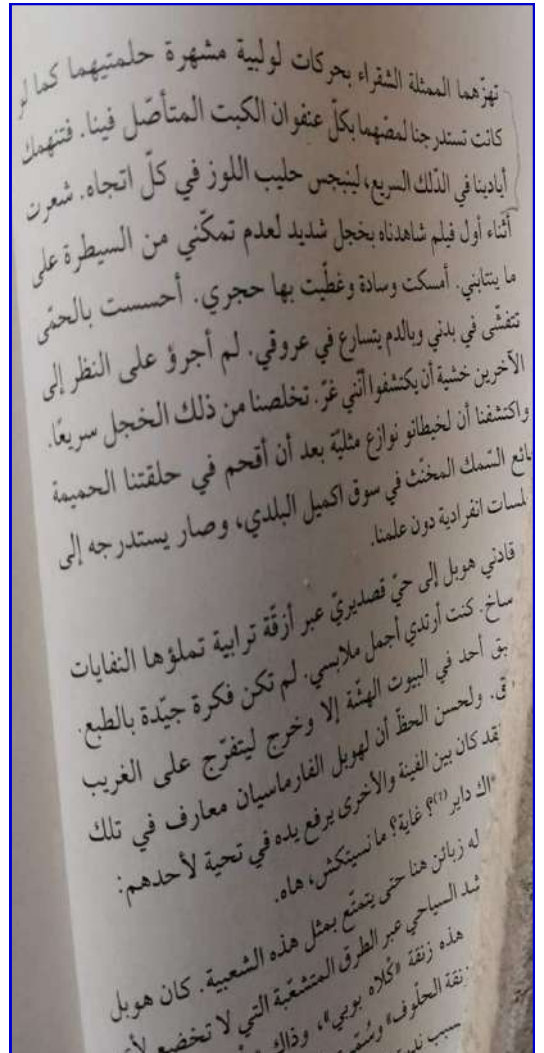 تهزّهما الممثلة الشقراء بحركات لولبية مشهرة حلمتيهما كما لو
كانت تستدرجنا لمصّهما بكلّ عنفوان الكبت المتأصّل فينا. فتنهمك
أيادينا في الدّلك السريع، لينبجس حليب اللوز في كلّ اتجاه. شعرت
أثناء أول فيلم شاهدناه بخجل شديد لعدم تمكّني من السيطرة على
ما ينتابني. أمسكت وسادة وغطّيت بها حجري. أحسست بالحمّى
تتفشّى في بدني وبالدم يتسارع في عروقي. لم أجرؤ على النظر إلى
الآخرين خشية أن يكتشفوا أنّني غرّ. تخلصنا من ذلك الخجل سريعًا.
واكتشفنا أن لخيطانو نوازع مثليّة بعد أن أقحم في حلقتنا الحميمة
بائع السّمك المخنّث في سوق اكميل البلدي، وصار يستدرجه إلى
لسات انفرادية دون علمنا.
قادني هوبل إلى حيّ قصديريّ عبر أزقّة ترابية تملؤها النفايات
ساخ. كنت أرتدي أجمل ملابسي. لم تكن فكرة جيّدة بالطبع.
بق أحد في البيوت الهشّة إلا وخرج ليتفرّج على الغريب
ق. ولحسن الحظّ أن لهوبل الفارماسيان معارف في تلك
قد كان بين الفينة والأخرى يرفع يده في تحية لأحدهم:
اك داير(1)؟ غاية؟ مانسيتكش، هاه.
له زبائن هنا حتى يتمتّع بمثل هذه الشعبية. كان هوبل
شد السياحي عبر الطرق المتشعّبة التي لا تخضع لأي
هذه زنقة «كْلاه بوبي»، وذاك
زنقة الحلّوف»
سبب